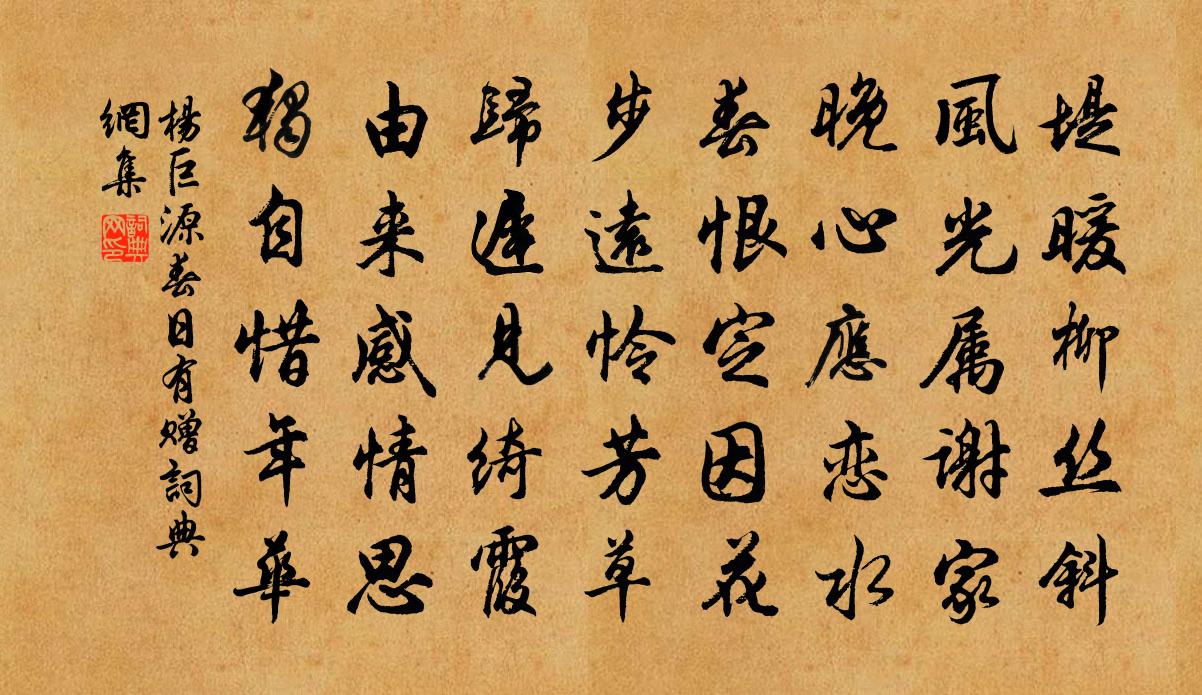 堤暖柳丝斜
風光属謝家
晚心應恋水
春恨定因花
步遠怜芳草
歸遲見綺霞
由来感情思
獨自惜年華
楊巨源春日有赠詞典
網集
詞典
网印